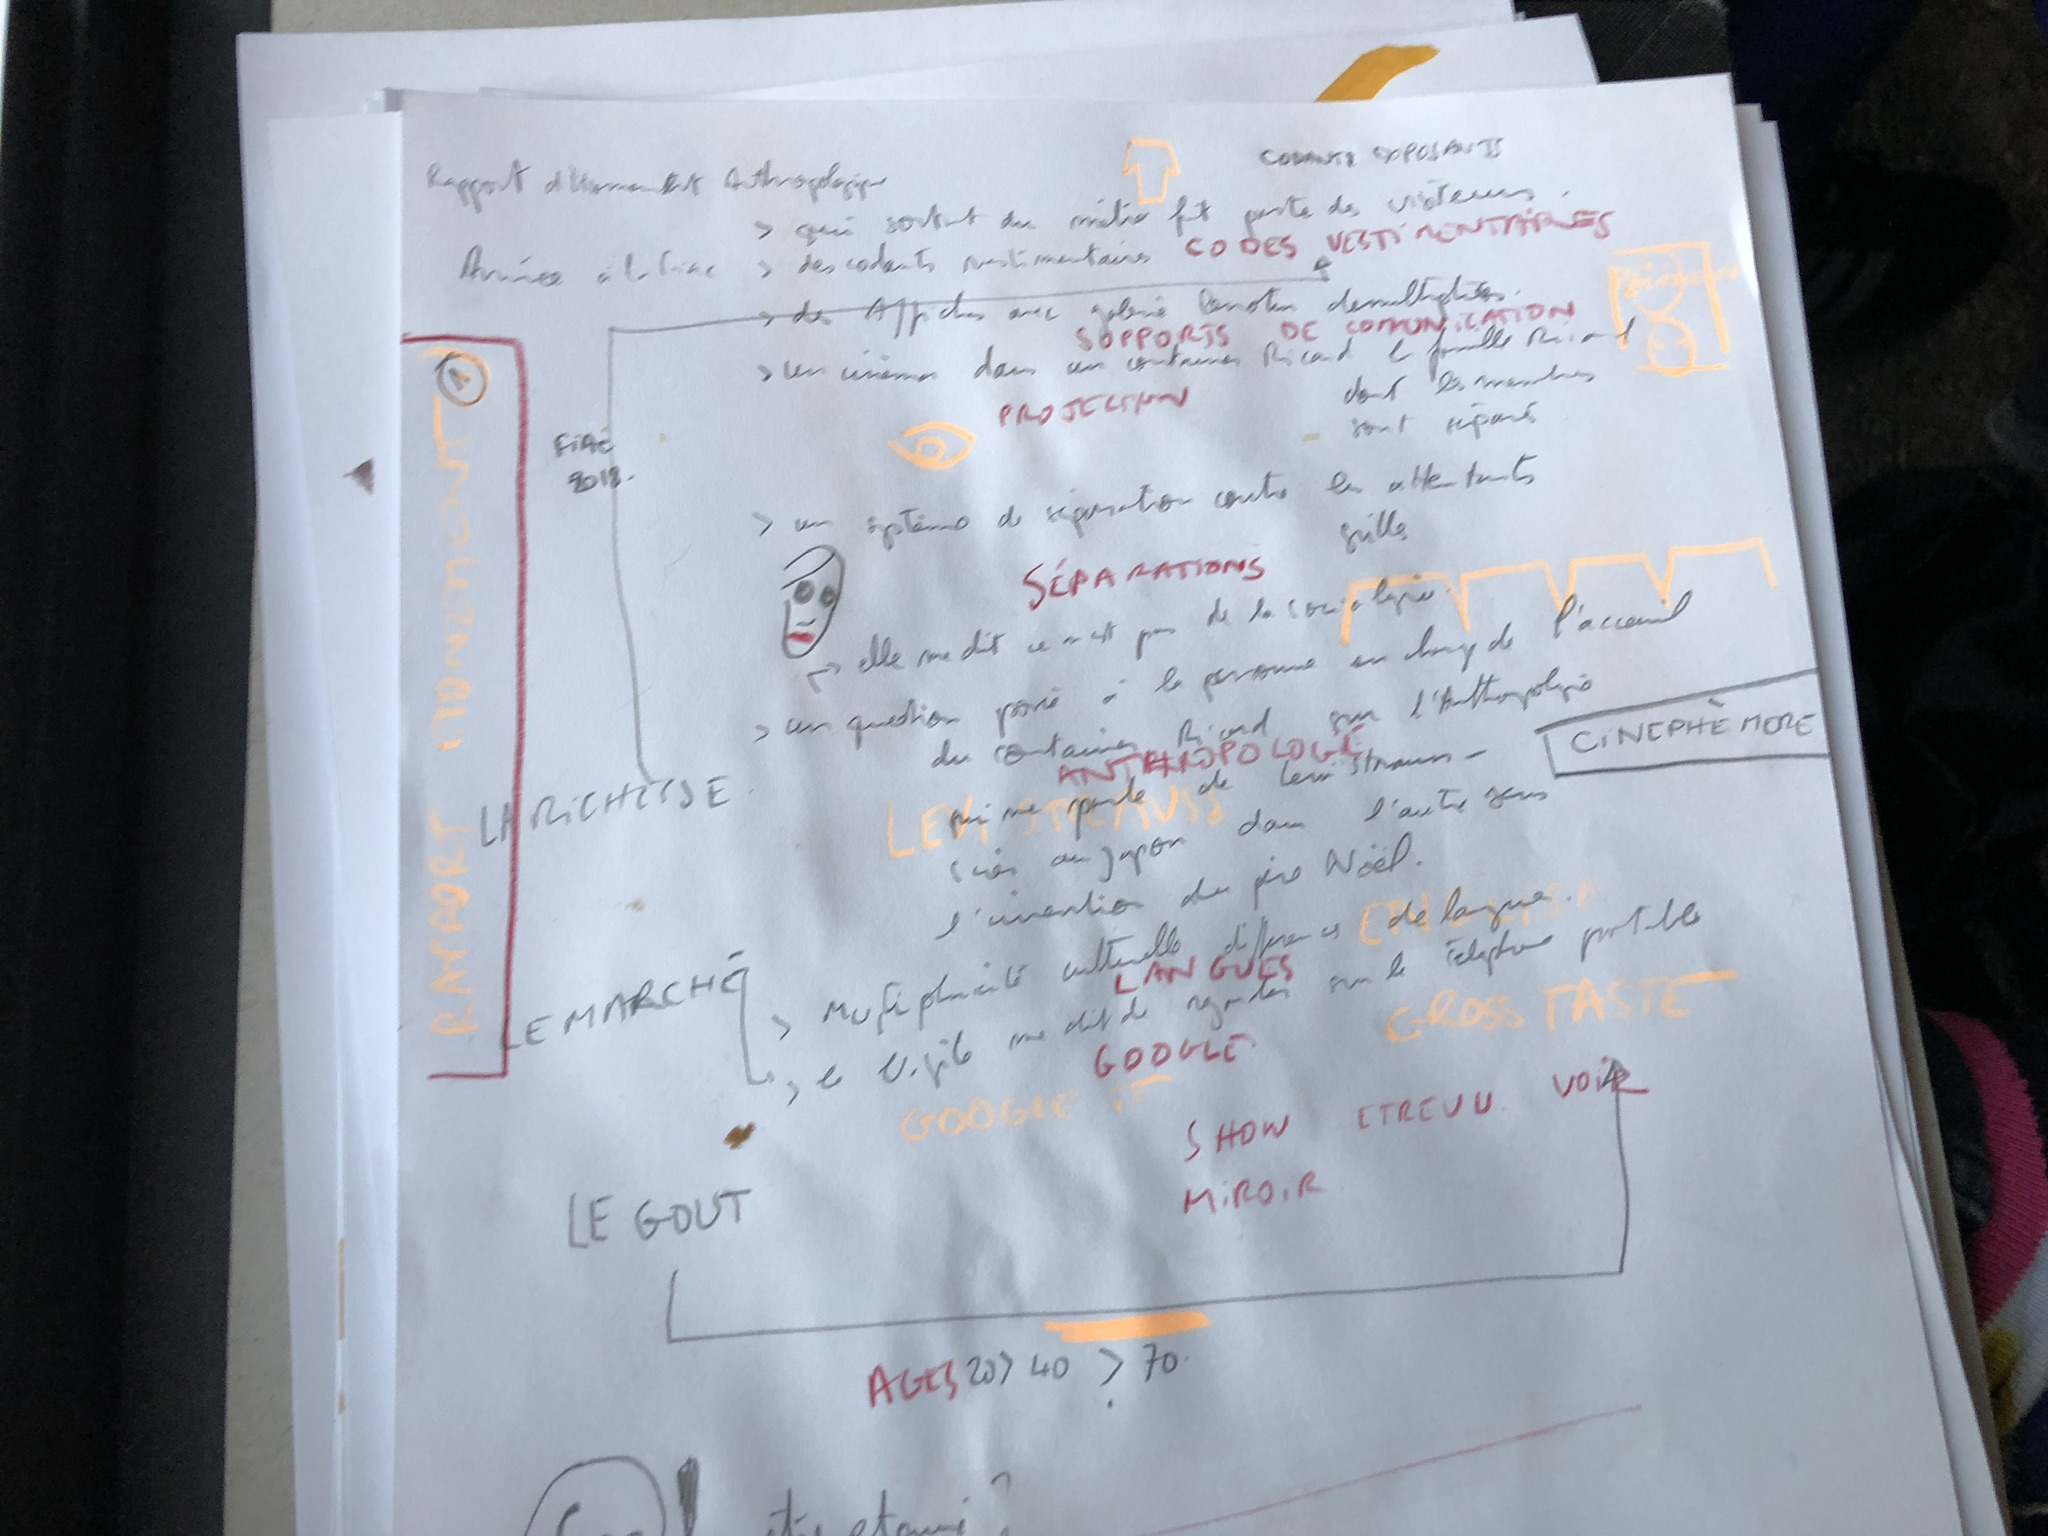 CODANTS EXPOSANTS
Rapport d'étonnement Anthropologique
> qui sortent du métro ft partie des visiteurs.
Arrivée à la fiac > des codants vestimentaires CODES VESTIMENTAIRES
> des Affiches avec galerie démultipliées.
SUPPORTS DE COMUNICATION
> un cinéma dans un container Ricard la famille Ricard
dont les membres
sont séparés
PROJECTION
FIAC
2018.
> un système de séparation contre les attentats
grilles
SÉPARATIONS
elle me dit ce n'est pas de la sociologie.
> un question posée à la personne en charge de l'acceuil
du container Ricard sur l'Anthropologie
ANTHROPOLOGIE
CINÉPHÈMORE
qui me parle de Levi Strauss -
LEVI STRAUSS
LA RICHESSE
au Japon dans l'autre sens
l'invention du père Noël.
> Multiplicité culturelle différences de langue.
LANGUES
LE MARCHÉ
> le vigile me dit de regarder sur le téléphone portable
GROSS TASTE
GOOGLE
GOOGLE IT
SHOW ETRE VU VOIR
MIROIR
LE GOUT
AGES 20 > 40 > 70
RAPPORT